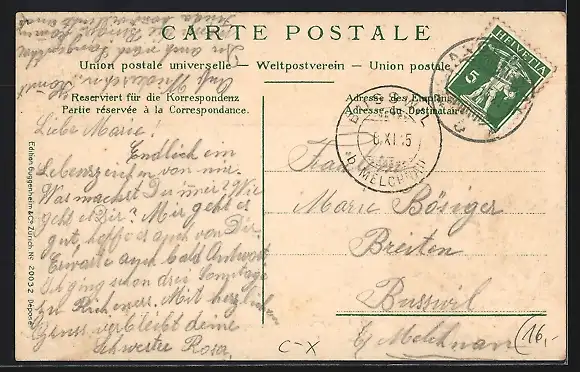 CARTE POSTALE
Union postale universelle — Weltpostverein — Union postale
Reserviert für die Korrespondenz
Partie réservée à la Correspondance.
Adresse des Empfän
Adresse du Destinataire
HELVETIA
5
BUSSWIL
XI 15
(b. MELCHNAU)
Liebe Marie!
Endlich ein
Lebenszeichen von mir.
Was machst Du immer? Wie
geht es Dir? Mir geht es
gut, hoffe es auch von Dir.
Erwarte auch bald Antwort.
Ich ging schon drei Sonntage
zu Richeners. Mit herzlichem
Gruss verbleibt deine
Schwester Rosa.
Auf Wiedersehen
Frau
Marie Bösiger
Breiten
Busswil
b/ Melchnau
16,-
C-X
Edition Guggenheim & Co., Zürich, No 20032 Déposé